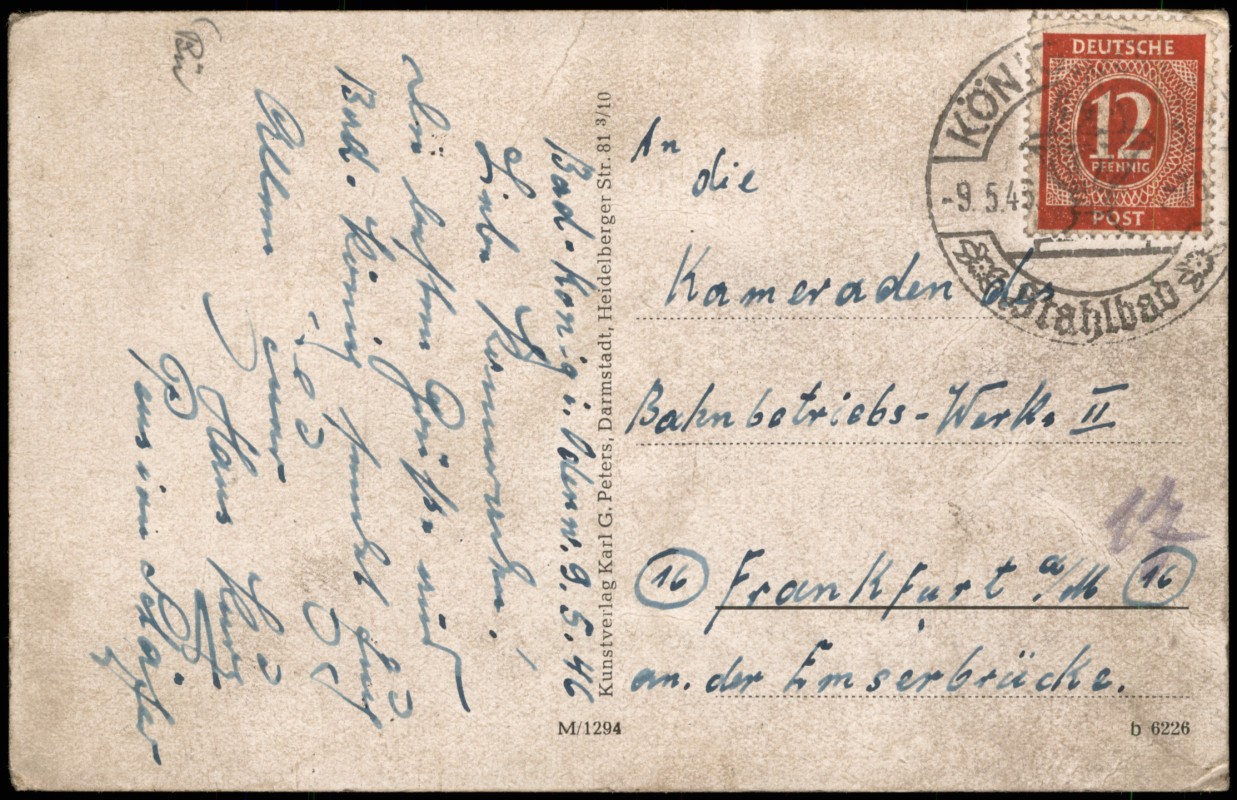 Bad-König i. Odenw. 9.5.46
Liebe Kameraden!
Die besten Grüße aus
Bad-König sendet Euch
Allen
Euer
Hans
Pension Schäfer
Kunstverlag Karl G. Peters, Darmstadt, Heidelberger Str. 81 3/10
DEUTSCHE
12
PFENNIG
POST
KÖN
-9.5.4
Stahlbad
An
die
Kameraden des
Bahnbetriebs-Werks II
16 Frankfurt a/M 16
an. der Emserbrücke.
17
M/1294
b 6226